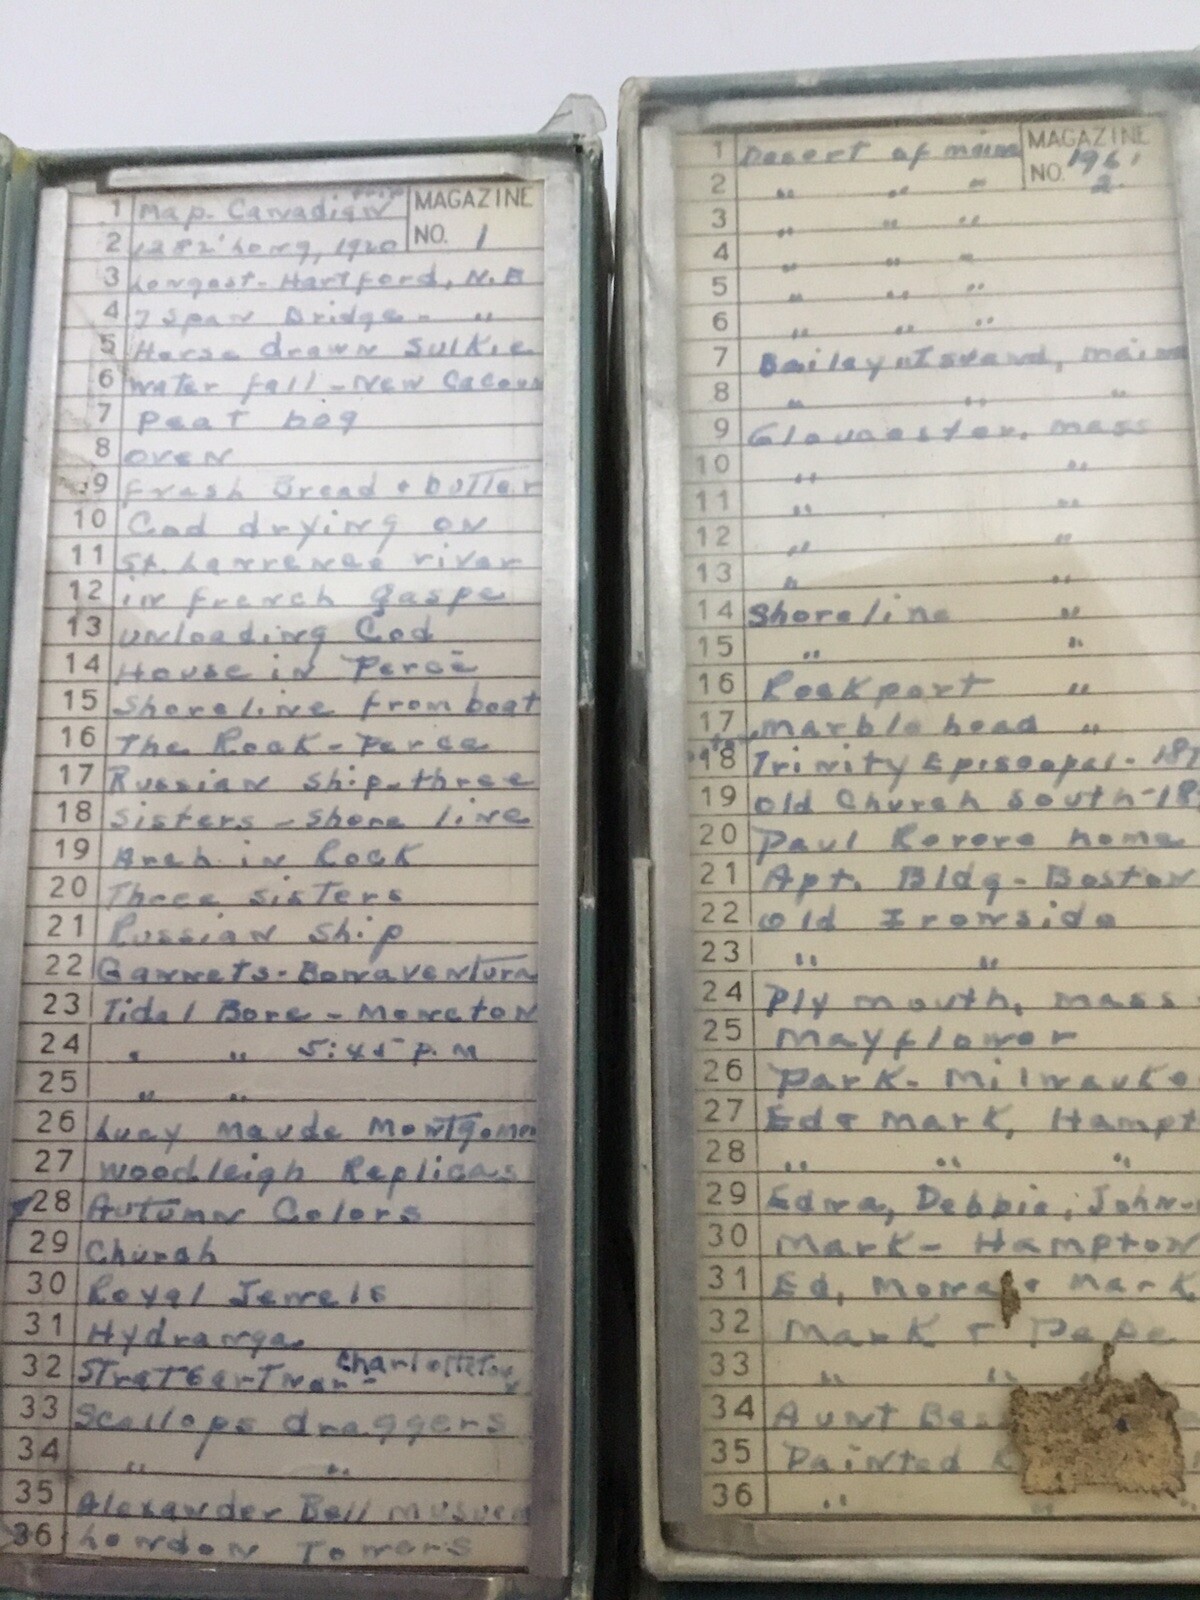 MAGAZINE
NO. 1
1 Map. Canadian trip
2 1282' Long, 1920
3 Longest - Hartford, N.B
4 7 Span Bridge - "
5 Horse drawn Sulkie
6 Water fall - New
7 Peat bog
8 oven
9 fresh Bread + butter
10 Cod drying on
11 St. Lawrence river
12 in french Gaspe
13 unloading Cod
14 House in Percé
15 Shoreline from boat
16 The Rock - Perce
17 Russian Ship - three
18 Sisters - Shore line
19 Arch in Rock
20 Three Sisters
21 Russian Ship
22 Gannets - Bonaventura
23 Tidal Bore - Moncton
24 " " 5:45 P.M
25 " "
26 Lucy Maude Montgom
27 Woodleigh Replicas
28 Autumn Colors
29 Church
30 Royal Jewels
31 Hydranga
32 Charlottetown
33 Scallops draggers
34 " "
35 Alexander Bell museum
36 London Towers
MAGAZINE
NO. 1961
2
1 Desert of maine
2 " " "
3 " " "
4 " " "
5 " " "
6 " " "
7 Bailey Island, maine
8 " " "
9 Gloucester, mass
10 " "
11 " "
12 " "
13 " "
14 Shoreline "
15 " "
16 Rockport "
17 marble head "
18 Trinity Episcopal - 187
19 old Church South - 18
20 Paul Revere home
21 Apt. Bldg - Boston
22 old Ironside
23 " "
24 Plymouth, mass
25 Mayflower
26 Park - Milwauke
27 Ed + Mark, Hampt
28 " " "
29 Edna, Debbie, John
30 Mark - Hampton
31 Ed, Mona + Mark
32 Mark + Pepe
33 " "
34 Aunt Bes
35 Painted
36 "